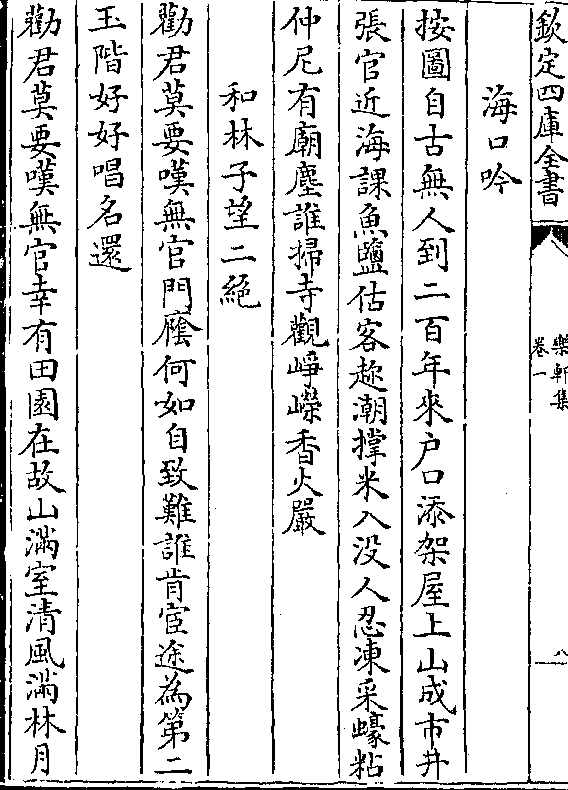 欽定四庫全書
樂軒集
卷一
八
海口吟
按圖自古無人到二百年來户口添架屋上山成市井
張官近海課魚鹽估客趂潮撐米入没人忍凍采蠔粘
仲尼有廟塵誰掃寺觀崢嶸香火嚴
和林子望二絶
勸君莫要嘆無官門廕何如自致難誰肯宦途為第二
玉階好好唱名還
勸君莫要嘆無官幸有田園在故山滿室清風滿林月